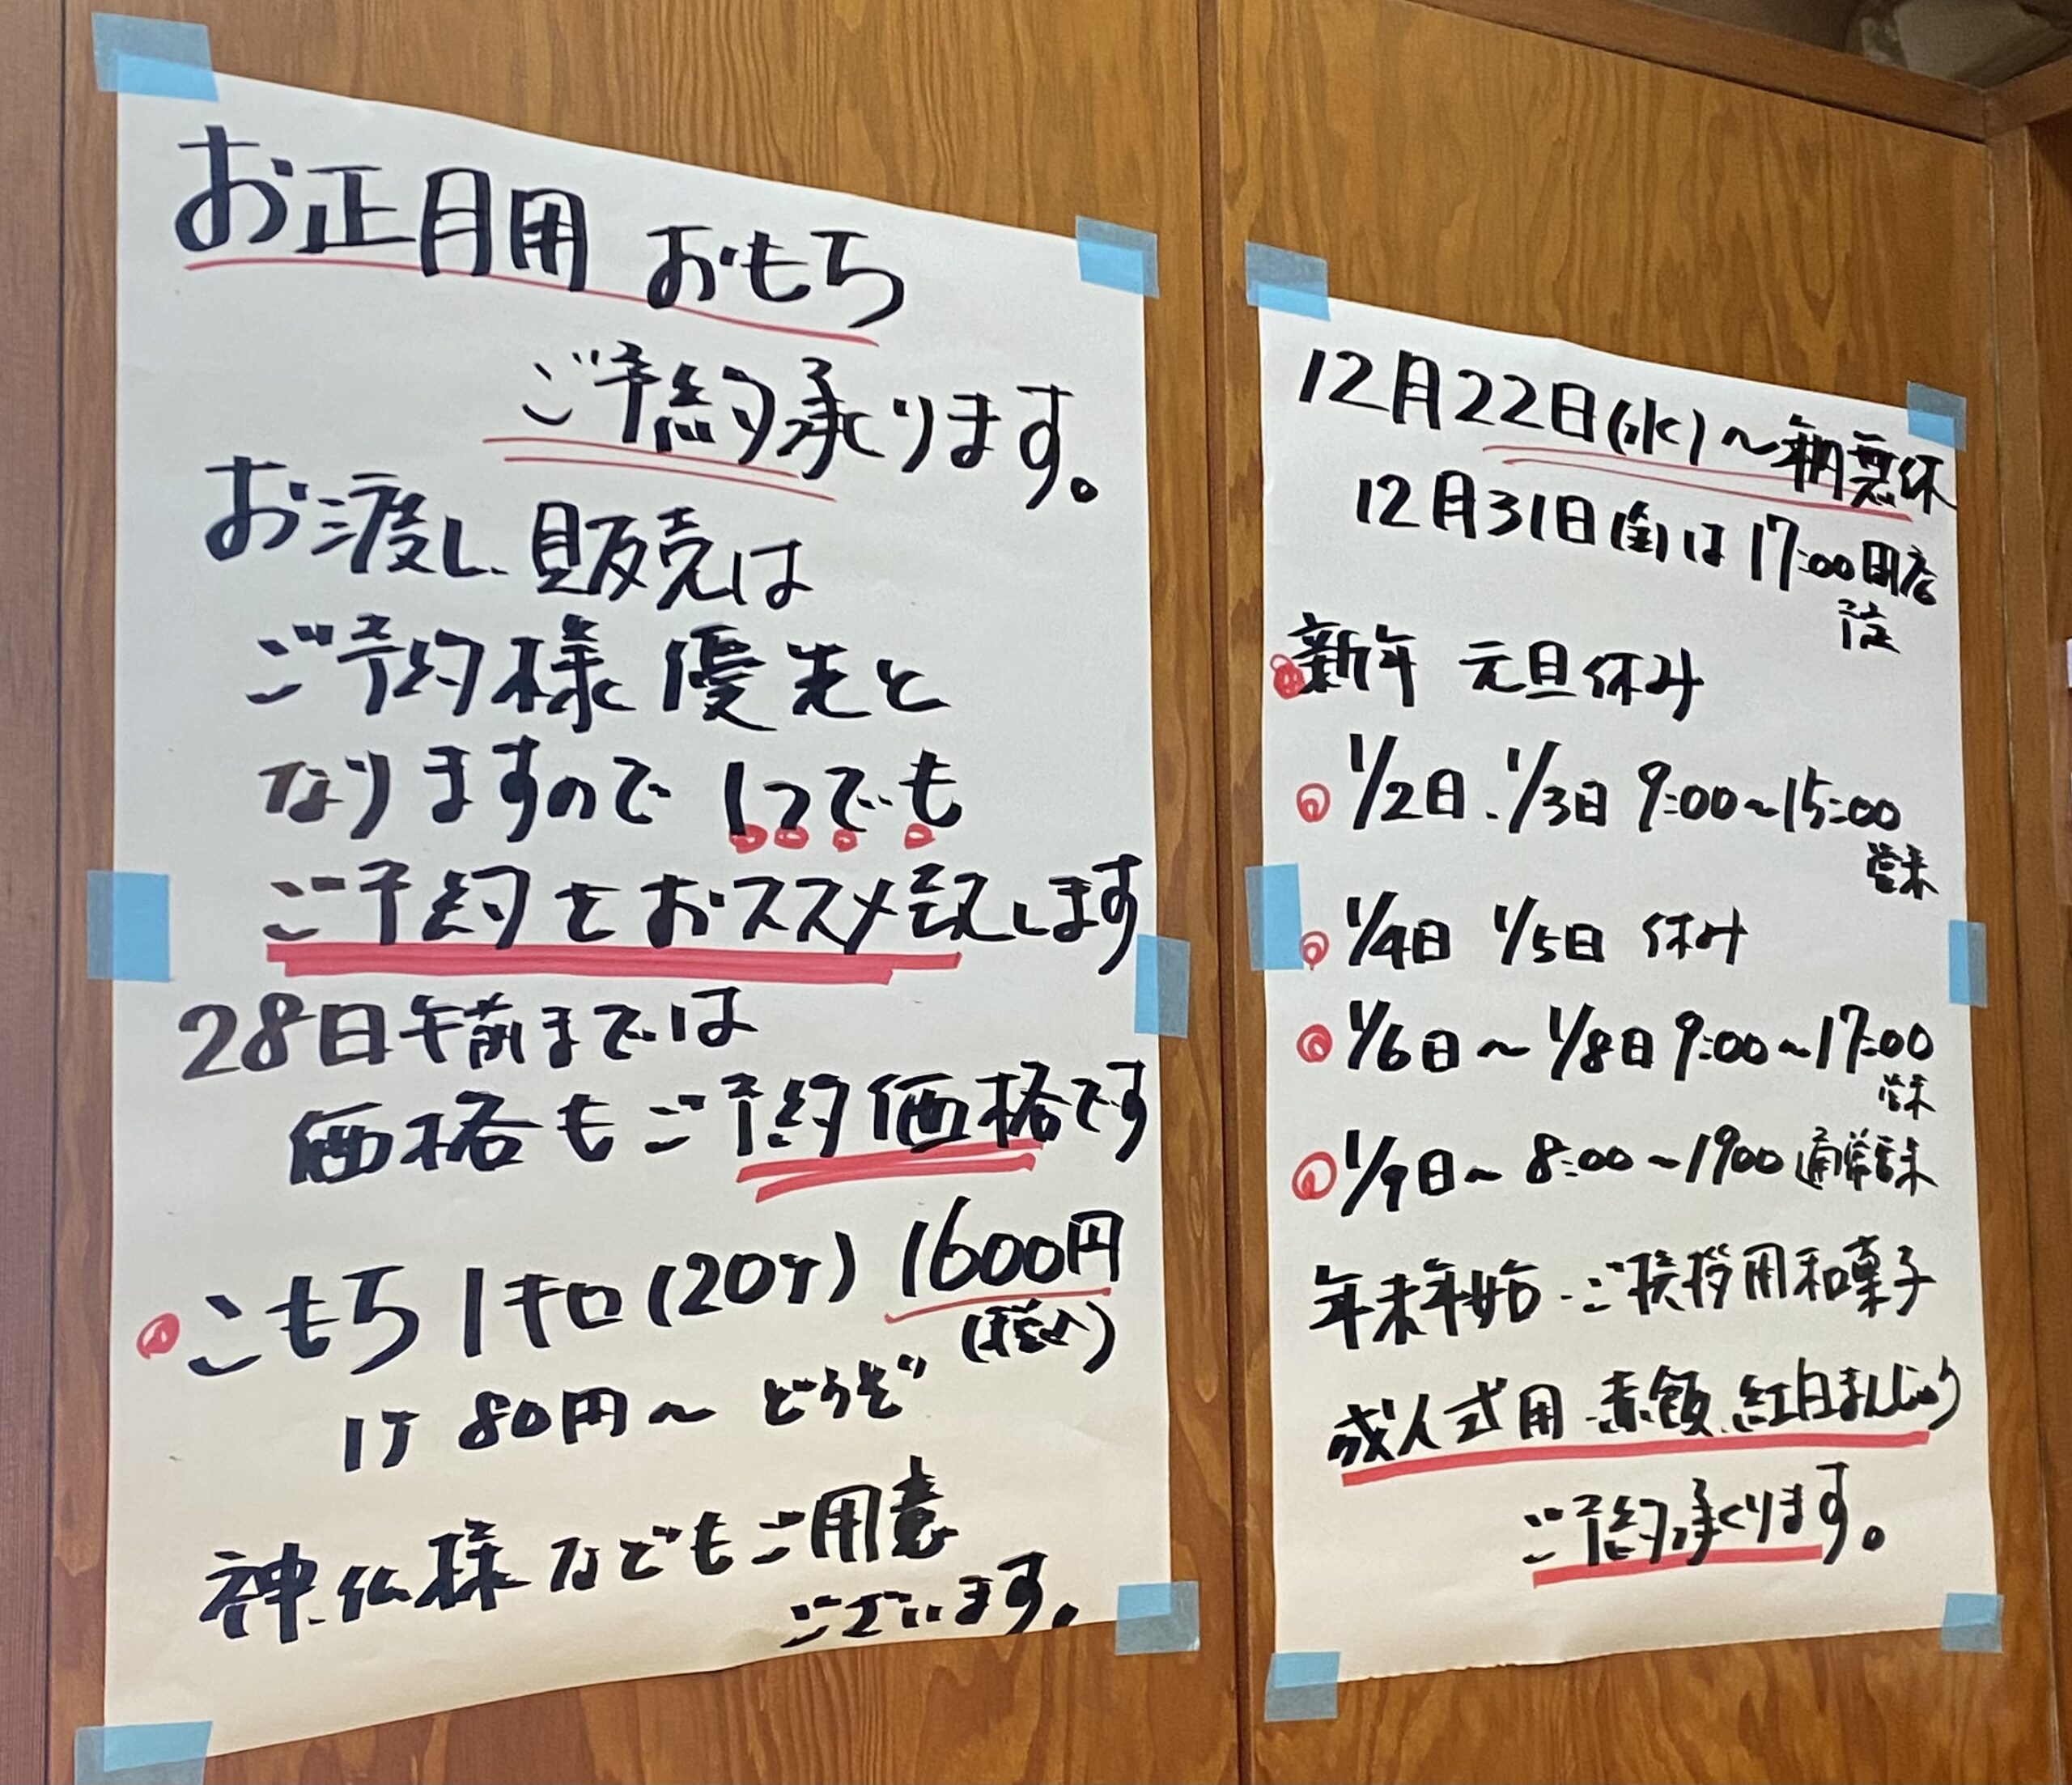 お正月用 おもち
ご予約承ります。
お渡し、販売は
ご予約様 優先と
なりますので いつでも
ご予約をおススメ致します
28日午前までは
価格もご予約価格です
こもち 1キロ(20ケ) 1600円
(税込)
1ケ 80円〜 どうぞ
神、仏様などもご用意
ございます。
12月22日(水)〜朝無休
12月31日(金)は 17:00閉店
予定
新年 元旦休み
1/2日、1/3日 9:00〜15:00
営業
1/4日 1/5日 休み
1/6日〜1/8日 9:00〜17:00
営業
1/9日〜 8:00〜1900 通常営業
年末年始・ご挨拶用和菓子
成人式用 赤飯、紅白まんじゅう
ご予約承くります。